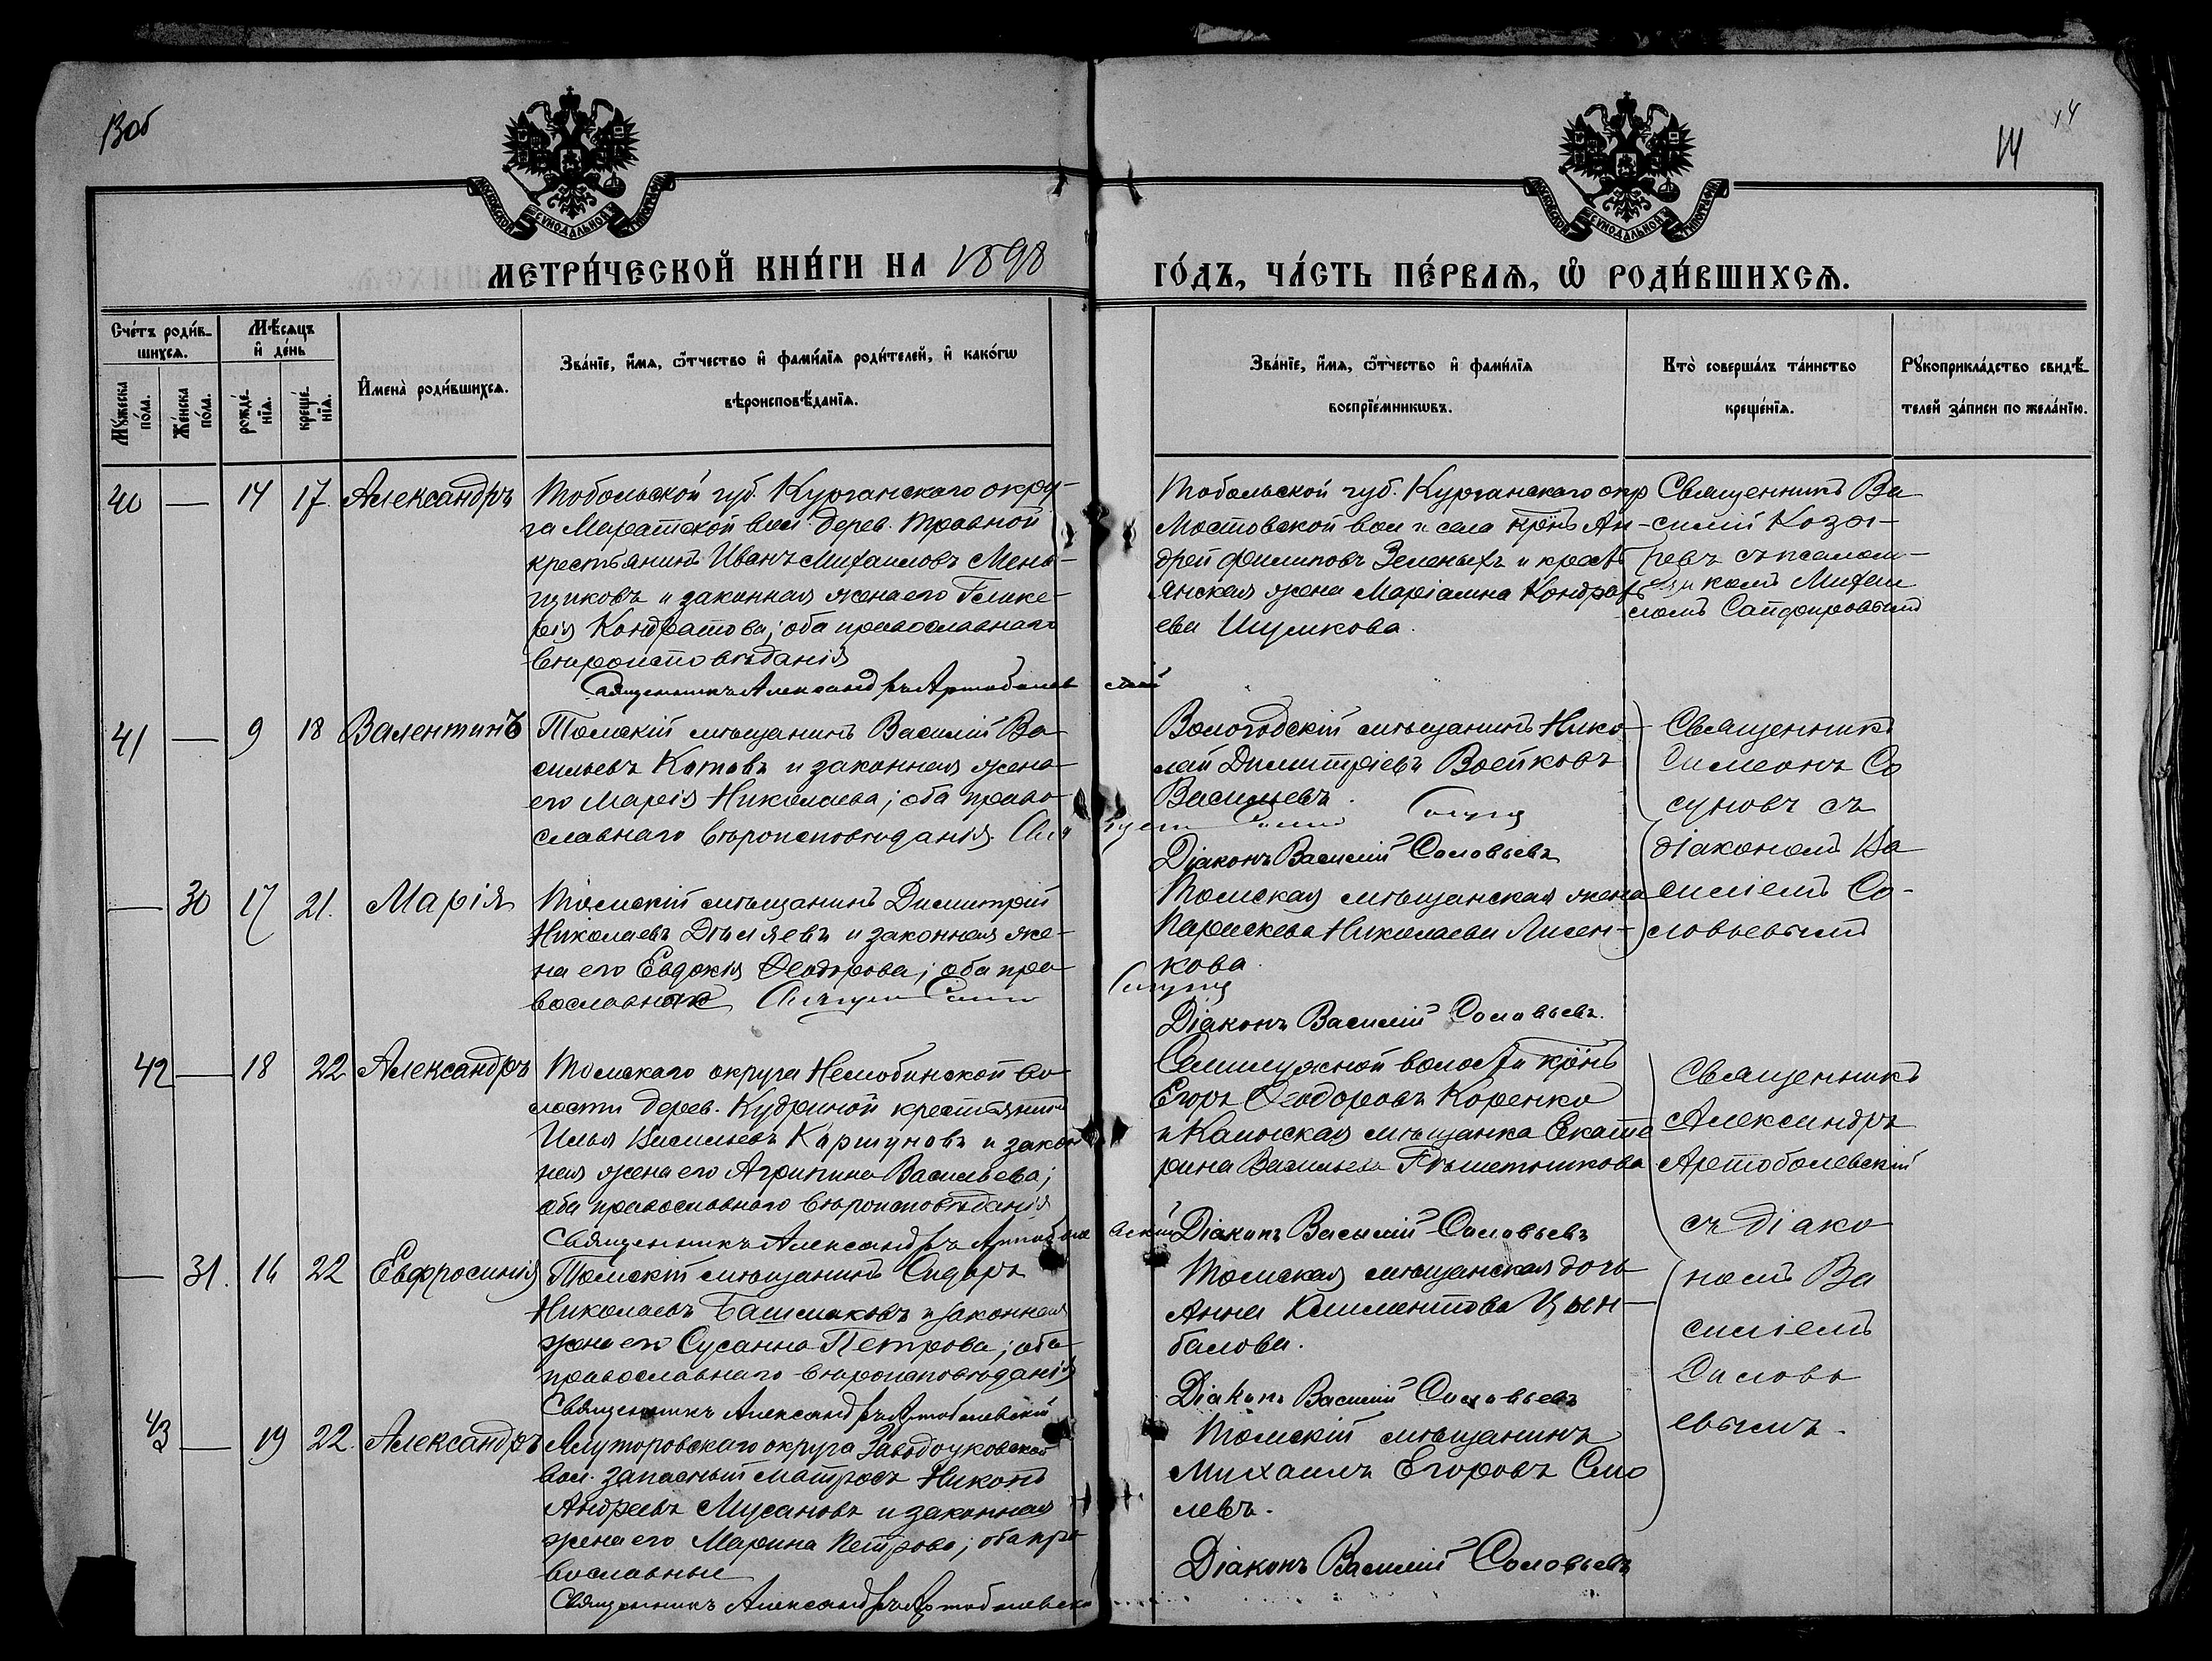 13об
14
14
МОСКОВСКОЙ СУНОДАЛЬНОЙ ТИПОГРАФІИ
МОСКОВСКОЙ СУНОДАЛЬНОЙ ТИПОГРАФІИ
МЕТРИ́ЧЕСКОЙ КНИ́ГИ НА 1898
ГО́ДЪ, ЧА́СТЬ ПЕ́РВАѦ, Ѽ РОДИ́ВШИХСѦ.
Сче́тъ роди́в-
шихсѧ.
Мѣ́сѧцъ
и҆ де́нь
Мꙋ́жеска
по́ла.
Же́нска
по́ла.
рожде́-
нїѧ.
креще́-
нїѧ.
И҆мена̀ роди́вшихсѧ.
Зва́нїе, и҆́мѧ, ѻ҆́тчество и҆ фами́лїѧ роди́телей, и҆ како́гѡ
вѣроисповѣ́данїѧ.
Зва́нїе, и҆́мѧ, ѻ҆́тчество и҆ фами́лїѧ
воспрїе́мникѡвъ.
Кто̀ соверша́лъ та́инство
креще́нїѧ.
Рꙋкоприкла́дство свидѣ́-
телей за́писи по жела́нїю.
40 — 14 17 Александръ
Тобольской губ. Курганскаго окру-
га Марайской вол. дерев. Травной
крестьянинъ Иванъ Михаиловъ Мень-
щиковъ и законная жена его Глике-
рія Кондратова; оба православнаго
вѣроисповѣданія
Священникъ Александръ Артоболевскій
Тобольской губ. Курганскаго окр
Мостовской вол и села крнъ Ан-
дрей Филиповъ Зеленыхъ и крестъ
янская жена Маріамна Кондрать
ева Шумкова.
Священникъ Ва
силій Козы-
ревъ съ псалом-
щикомъ Михаи
ломъ Сапфировымъ
41 — 9 18 Валентинъ
Томскій мѣщанинъ Василій Ва-
сильевъ Котовъ и законная жена
его Марія Николаева; оба право-
славнаго вѣроисповѣданія.
Вологодскій мѣщанинъ Нико-
лай Димитріевъ Войтковъ
Васильевъ.
Діаконъ Василій Соловьевъ
Священникъ
Симеонъ Со
суновъ съ
діакономъ Ва
силіемъ Со-
ловьевымъ
— 30 17 21. Марія
Томскій мѣщанинъ Димитрій
Николаевъ Дѣляевъ и законная же-
на его Евдокія Ѳеодорова; оба пра-
вославные
Томская мѣщанская жена
Параскева Николаева Лисен-
кова.
Діаконъ Василій Соловьевъ.
42 — 18 22 Александръ
Томскаго округа Нелюбинской во-
лости дерев. Кудриной крестьянинъ
Илья Васильевъ Коршуновъ и закон
ная жена его Агрипина Васильева;
оба православнаго вѣроисповѣданія
Священникъ Александръ Артоболевскій
Семилужной волости крнъ
Егоръ Ѳеодоровъ Коренко
и Каинская мѣщанка Екате
рина Васильева Рѣшетникова
Діаконъ Василій Соловьевъ
Священникъ
Александръ
Артоболевскій
съ діако
номъ Ва
силіемъ
Соловь
евымъ.
— 31. 16 22 Евфросинія
Томскій мѣщанинъ Сидоръ
Николаевъ Башмаковъ и законная
жена его Сусанна Петрова; оба
православнаго вѣроисповѣданія
Священникъ Александръ Артоболевскій
Томская мѣщанская дочь
Анна Климентова Цын-
балова.
Діаконъ Василій Соловьевъ
43 — 19 22. Александръ
Ялуторовскаго округа Заводоуковской
вол. запасный матросъ Никонъ
Андреевъ Мусановъ и законная
жена его Марина Петрова; оба пра-
вославные
Священникъ Александръ Артоболевскі
Томскій мѣщанинъ
Михаилъ Егоровъ Смо
левъ.
Діаконъ Василій Соловьевъ